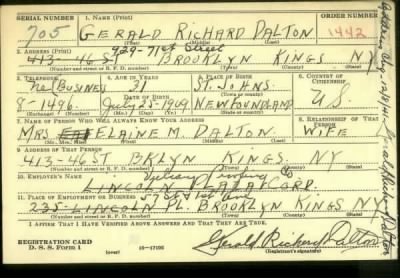 SERIAL NUMBER 1. NAME (Print) ORDER NUMBER
705 GERALD RICHARD DALTON 1442
(First) (Middle) (Last)
2. ADDRESS (Print) 929-71st Street
413-46 ST BROOKLYN KINGS NY
(Number and street or R. F. D. number) (Town) (County) (State)
3. TELEPHONE 4. AGE IN YEARS 5. PLACE OF BIRTH 6. COUNTRY OF CITIZENSHIP
BUSINESS 31 ST. JOHNS
DATE OF BIRTH
8-1496 July-25-1909 NEWFOUNDLAND U.S.
(Mo.) (Day) (Yr.) (State or country)
7. NAME OF PERSON WHO WILL ALWAYS KNOW YOUR ADDRESS 8. RELATIONSHIP OF THAT PERSON
MRS. ELAINE M. DALTON WIFE
(Mr., Mrs., Miss) (First) (Middle) (Last)
9. ADDRESS OF THAT PERSON
413-46 ST BKLYN KINGS NY
(Number and street or R. F. D. number) (Town) (County) (State)
10. EMPLOYER'S NAME
LINCOLN PLAZA CORP.
11. PLACE OF EMPLOYMENT OR BUSINESS
235-LINCOLN PL. BROOKLYN KINGS NY
(Number and street or R. F. D. number) (Town) (County) (State)
I AFFIRM THAT I HAVE VERIFIED ABOVE ANSWERS AND THAT THEY ARE TRUE.
REGISTRATION CARD
D. S. S. Form 1 (over) 16-17105
Gerald Richard Dalton
(Registrant's signature)